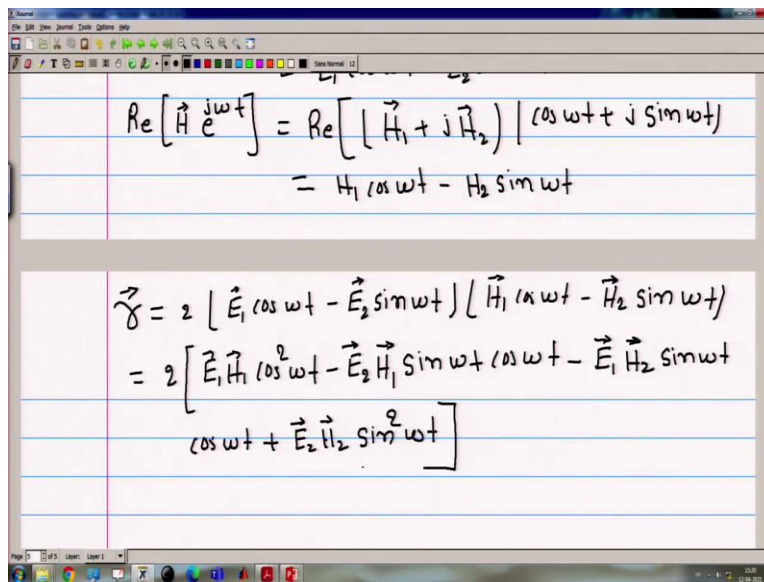 Xournal
File Edit View Journal Tools Options Help
Sans Normal 12
Re[H⃗ e^jωt] = Re[(H⃗₁ + jH⃗₂)(cos ωt + j sin ωt)
= H₁ cos ωt - H₂ sin ωt
γ⃗ = 2(E⃗₁ cos ωt - E⃗₂ sin ωt)(H⃗₁ cos ωt - H⃗₂ sin ωt)
= 2[E⃗₁H⃗₁ cos²ωt - E⃗₂H⃗₁ sin ωt cos ωt - E⃗₁H⃗₂ sin ωt
cos ωt + E⃗₂H⃗₂ sin²ωt]
Page 5 of 5 Layer: Layer 1
15:20